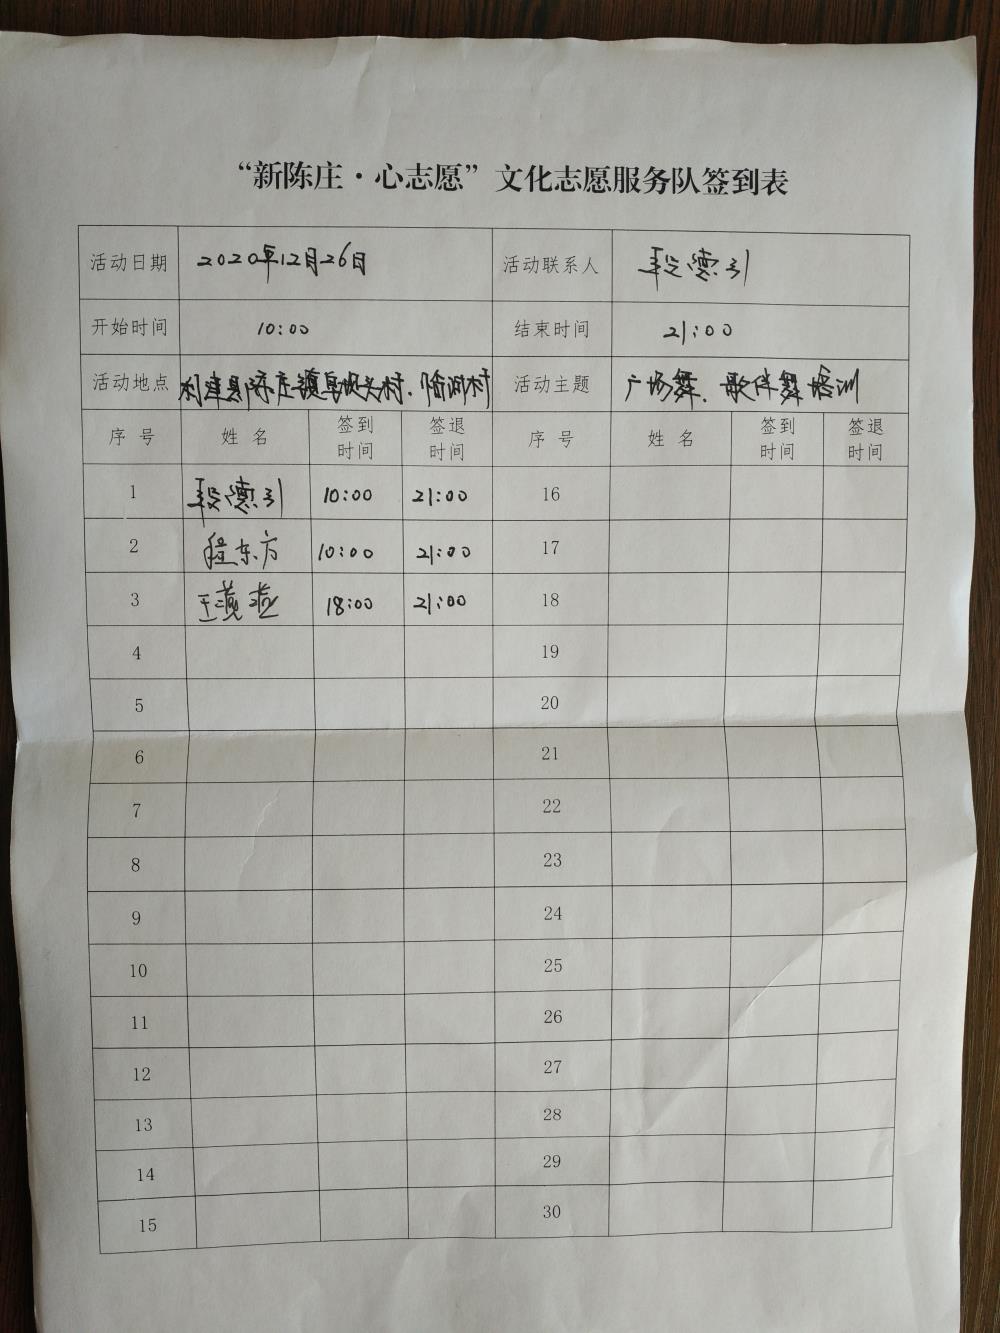 “新陈庄·心志愿”文化志愿服务队签到表
活动日期 2020年12月26日 活动联系人 段德引
开始时间 10:00 结束时间 21:00
活动地点 利津县陈庄镇 村、临河村 活动主题 广场舞、歌伴舞培训
序号 姓名 签到时间 签退时间 序号 姓名 签到时间 签退时间
1 段德引 10:00 21:00 16
2 程东方 10:00 21:00 17
3 王 18:00 21:00 18
4 19
5 20
6 21
7 22
8 23
9 24
10 25
11 26
12 27
13 28
14 29
15 30